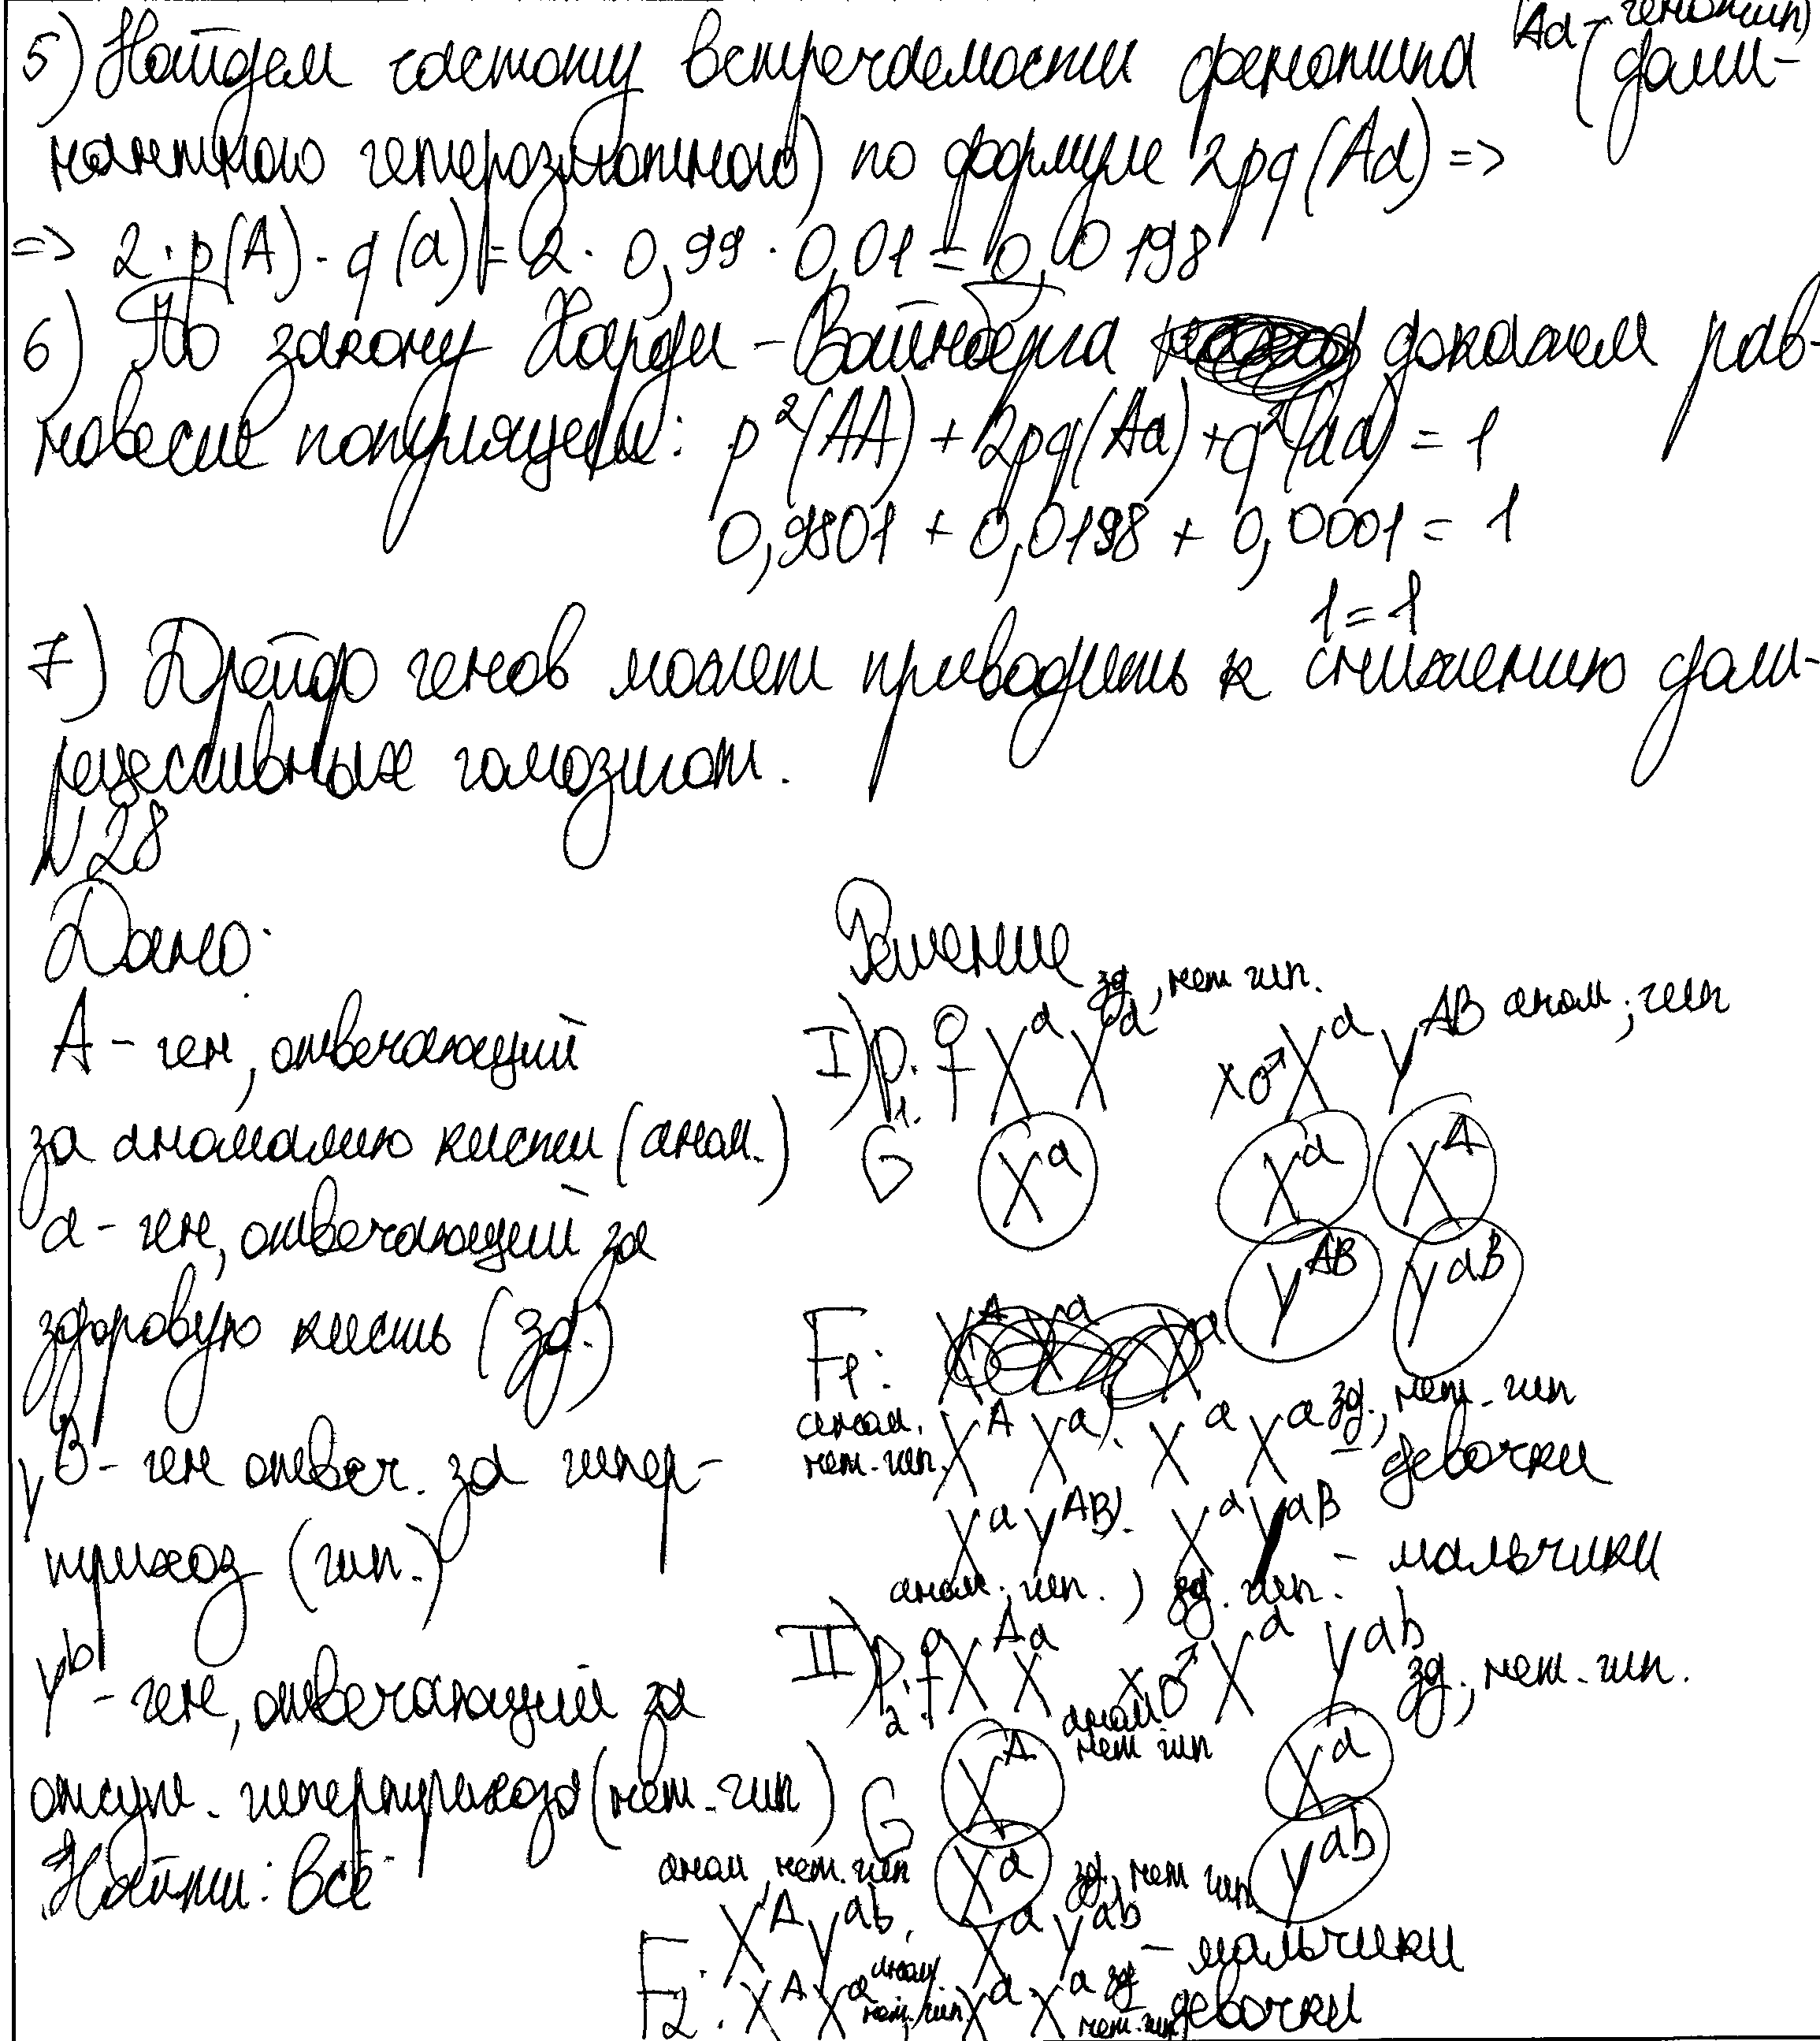 5) Найдем частоту встречаемости фенотипа (доми-
(Aa - генотип)
нантного гетерозиготного) по формуле 2pq(Aa) =>
=> 2·p(A)·q(a) = 2·0,99·0,01 = 0,0198
6) По закону Харди-Вайнберга докажем рав-
новесие популяции: p²(AA) + 2pq(Aa) + q²(aa) = 1
0,9801 + 0,0198 + 0,0001 = 1
1 = 1
7) Дрейф генов может приводить к снижению доли
рецессивных гомозигот.
N28
Дано:
A - ген, отвечающий
за аномалию кисти (аном.)
a - ген, отвечающий за
здоровую кисть (зд.)
Y^B - ген отвеч. за гипер-
трихоз (гип.)
Y^b - ген, отвечающий за
отсут. гипертрихоза (нет. гип)
Найти: всё
Решение
зд, нет гип. аном; гип
I) P1. ♀ X^a X^a x ♂ X^a Y^AB
G X^a X^a X^A
Y^AB Y^aB
F1:
аном. нет. гип. X^A X^a, X^a X^a зд., нет. гип - девочки
X^a Y^AB, X^a Y^aB - мальчики
аном; гип., зд. гип.
II) P2. ♀ X^A X^a x ♂ X^a Y^ab зд., нет. гип.
аном нет гип
G X^A X^a
X^a Y^ab
аном, нет. гип зд, нет гип.
F2: X^A Y^ab, X^a Y^ab - мальчики
X^A X^a аном. нет. гип, X^a X^a зд нет. гип, девочки